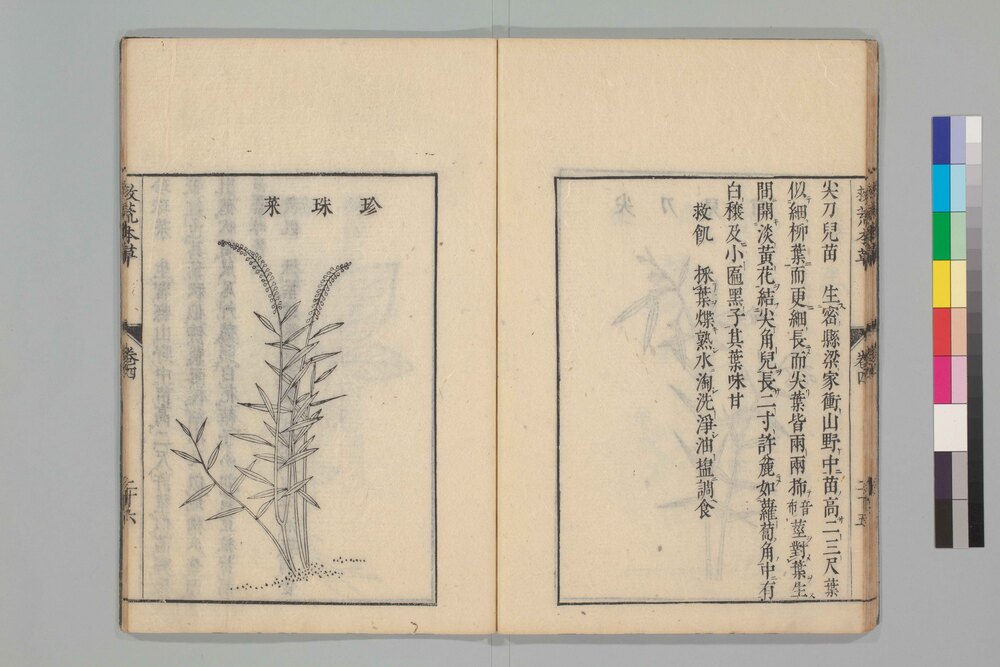 尖刀兒苗　生密縣梁家衝山野中苗高二三尺葉
似細柳葉而更細長而尖葉皆兩兩抪音布莖對葉生
間開淡黃花結尖角兒長二寸許麄如蘿蔔角中有
白穰及小匾黑子其葉味甘
救飢　採葉煠熟水淘洗淨油塩調食
珍珠菜
救荒本草
卷四
二十六